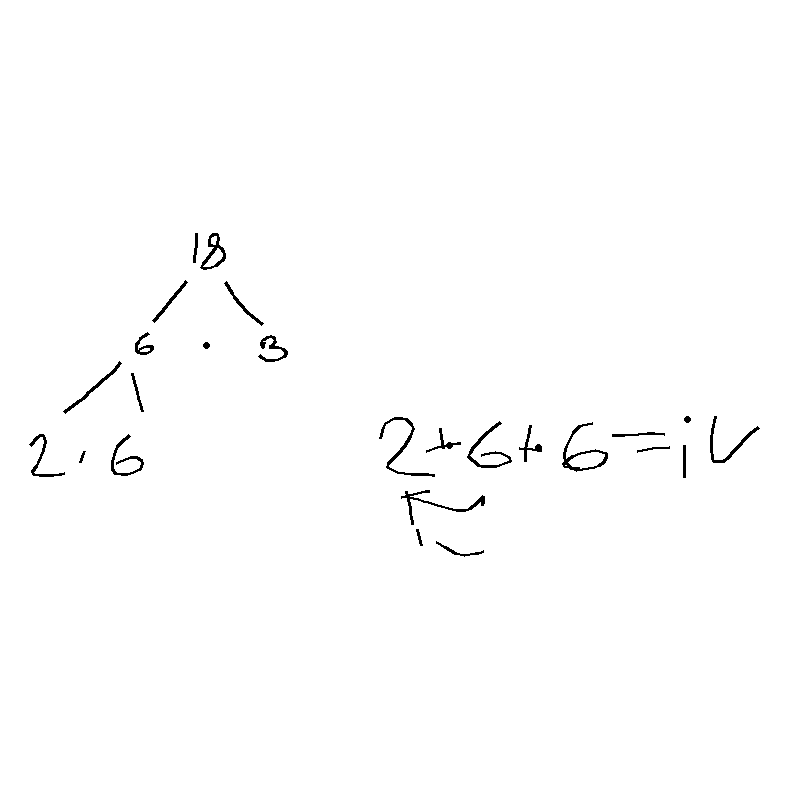 18
6 · 3
2 · 6
2+6+6=iv